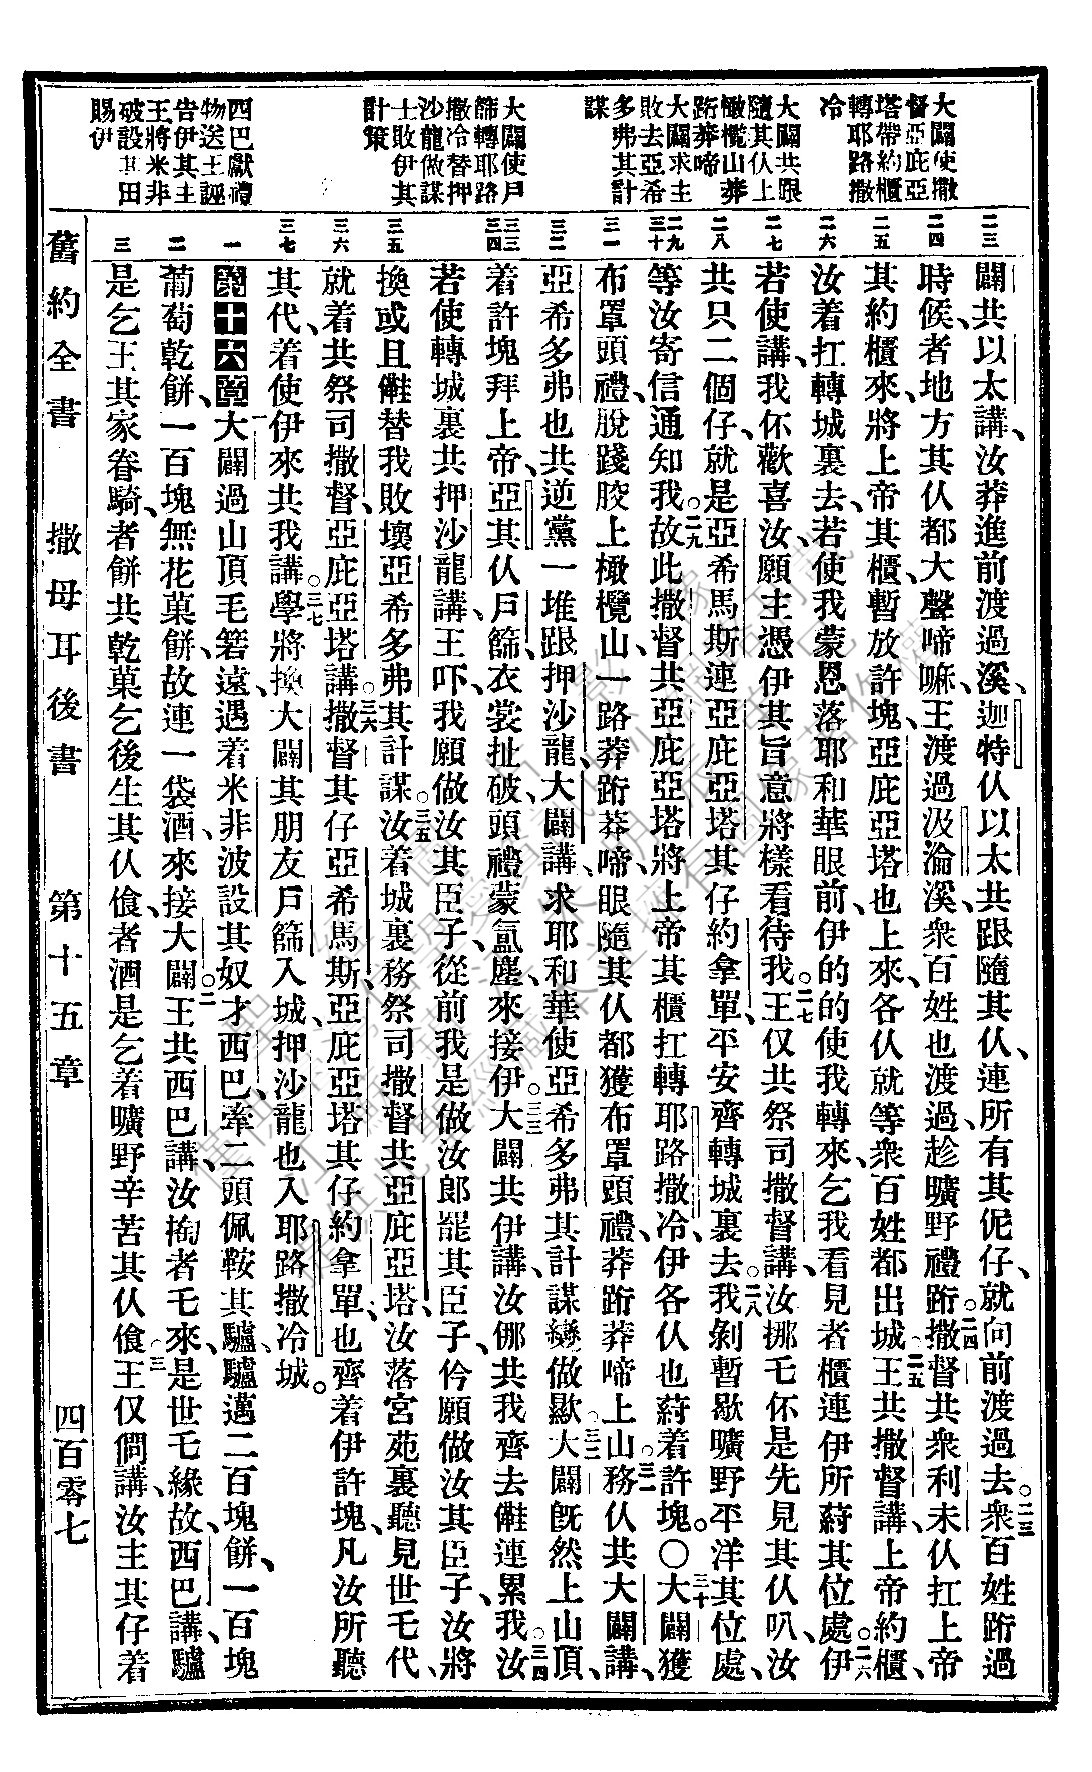 大闢使撒
督亞庇亞
塔帶約櫃
轉耶路撒
冷
大闢共跟
隨其仈上
橄欖山莽
跨莽啼
大闢求主
敗去亞希
多弗其計
謀
大闢使戶
篩轉耶路
撒冷替押
沙龍做謀
士敗伊其
計策
四巴獻禮
物送王誣
告伊其主
王將米非
破設其田
賜伊
二三
二四
二五
二六
二七
二八
二九
三十
三一
三二
三三
三四
三五
三六
三七
一
二
三
闢共以太講、汝莽進前渡過溪、迦特仈以太共跟隨其仈、連所有其伲仔、就向前渡過去。二三衆百姓跨過
時候、者地方其仈都大聲啼嘛、王渡過汲淪溪、衆百姓也渡過趁曠野禮跨。二四撒督共衆利未仈扛上帝
其約櫃來、將上帝其櫃、暫放許塊、亞庇亞塔也上來、各仈就等衆百姓都出城。二五王共撒督講、上帝約櫃、
汝着扛轉城裏去、若使我蒙恩落耶和華眼前、伊的的使我轉來、乞我看見者櫃連伊所蒔其位處。二六伊
若使講、我伓歡喜汝、願主憑伊其旨意將樣看待我。二七王仅共祭司撒督講、汝挪乇伓是先見其仈叭、汝
共只二個仔、就是亞希馬斯連亞庇亞塔其仔約拿單、平安齊轉城裏去。二八我剝暫歇曠野平洋其位處、
等汝寄信通知我。二九故此撒督共亞庇亞塔、將上帝其櫃扛轉耶路撒冷、伊各仈也蒔着許塊。〇三十大闢獲
布罩頭禮、脫踐骹上橄欖山、一路莽跨莽啼、眼隨其仈都獲布罩頭禮、莽跨莽啼上山。三一務仈共大闢講、
亞希多弗也共逆黨一堆跟押沙龍、大闢講、求耶和華使亞希多弗其計謀變做歞。三二大闢旣然上山頂、
着許塊拜上帝、亞其仈戶篩、衣裳扯破、頭禮蒙氲塵、來接伊。三三大闢共伊講、汝倻共我齊去、僅連累我、三四汝
若使轉城裏共押沙龍講、王吓、我願做汝其臣子、從前我是做汝郎罷其臣子、伶願做汝其臣子、汝將
換或且䧹替我敗壞亞希多弗其計謀。三五汝着城裏務祭司撒督共亞庇亞塔、汝落宮苑裏聽見世乇代、
就着共祭司撒督、亞庇亞塔講。三六撒督其仔亞希馬斯、亞庇亞塔其仔約拿單、也齊着伊許塊、凡汝所聽
其代、着使伊來共我講。三七學將換、大闢其朋友戶篩入城、押沙龍也入耶路撒冷城。
第十六章一大闢過山頂乇箬遠、遇着米非波設其奴才西巴、牽二頭佩鞍其驢、驢邁二百塊餅、一百塊
葡萄乾餅、一百塊無花菓餅、故連一袋酒、來接大闢。二王共西巴講、汝掏者乇來、是世乇緣故、西巴講、驢
是乞王其家眷騎、者餅共乾菓乞後生其仈飧、者酒是乞着曠野辛苦其仈飧。三王仅問講、汝主其仔着
舊約全書　撒母耳後書　第十五章　四百零七